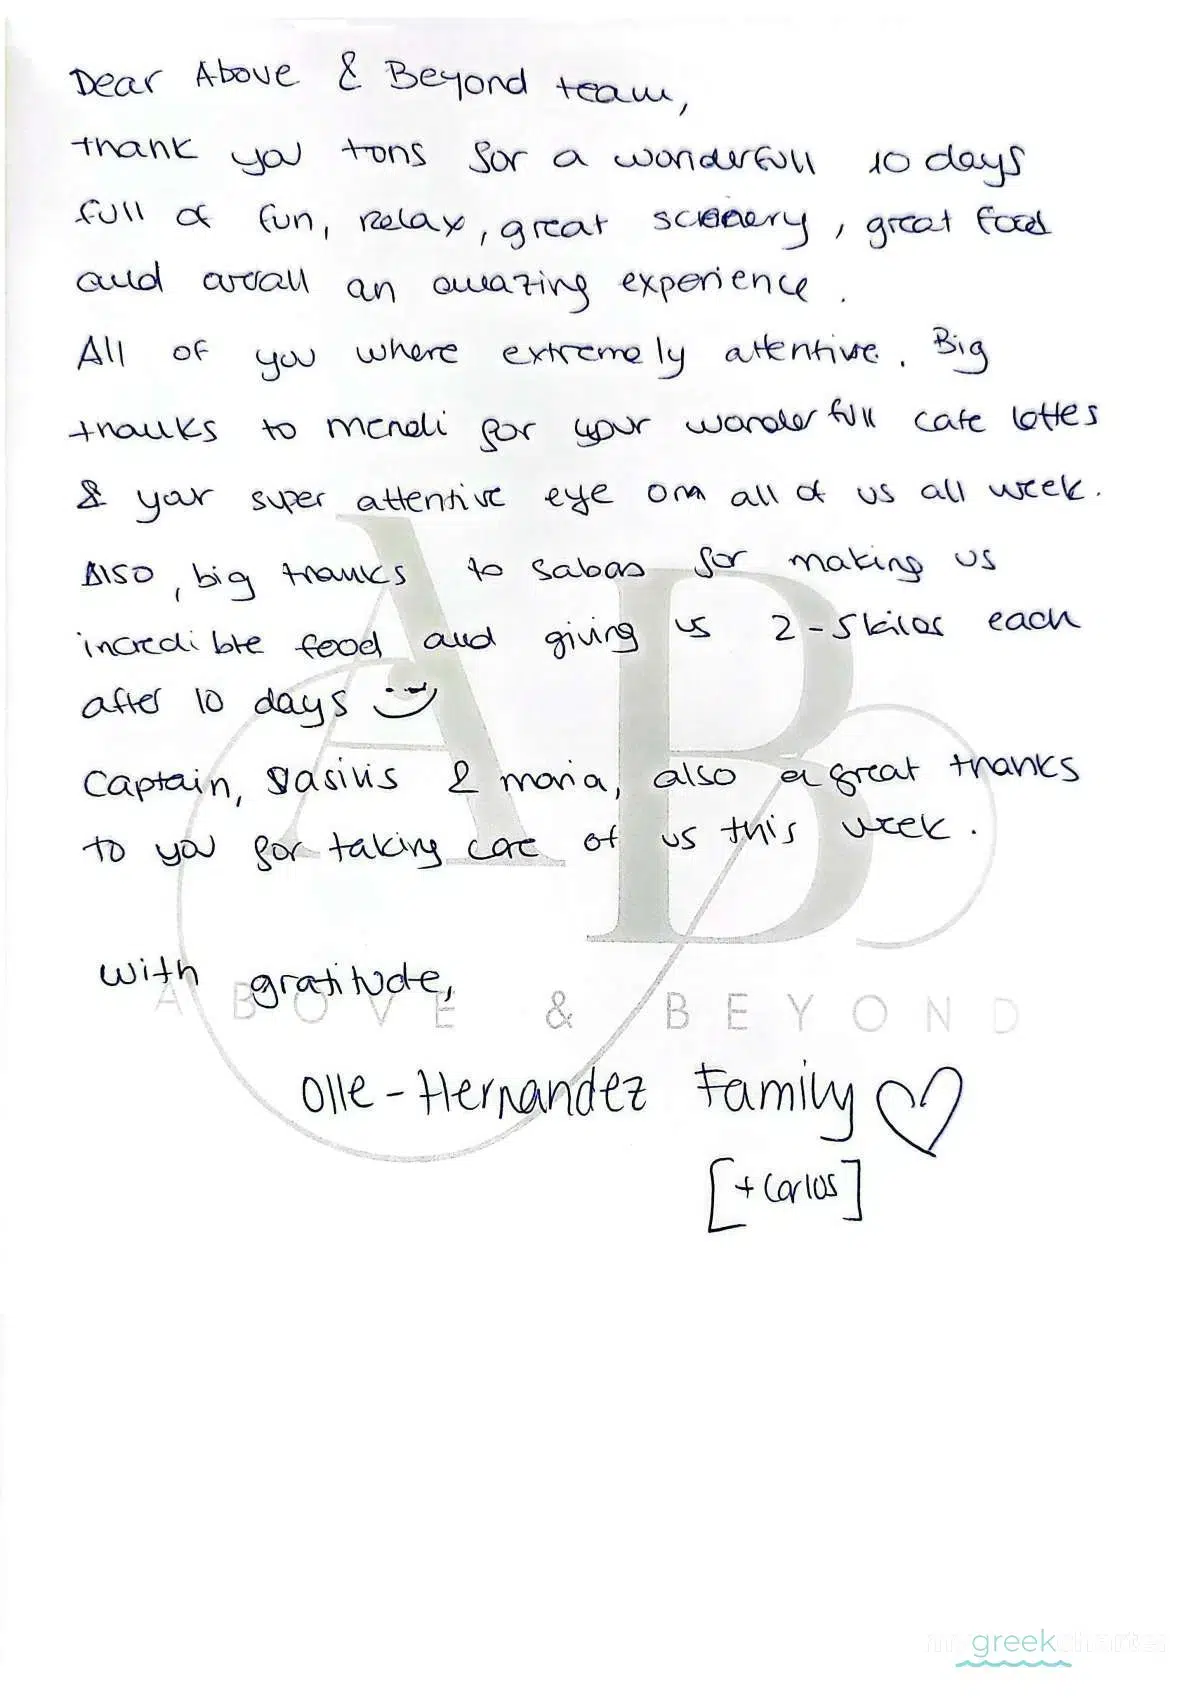 Dear Above & Beyond team,
thank you tons for a wonderfull 10 days
full of fun, relax, great scenery, great food
and overall an amazing experience.
All of you where extremely attentive. Big
thanks to Mendi for your wonderfull cafe lattes
& your super attentive eye on all of us all week.
Also, big thanks to Sabas for making us
incredible food and giving us 2-5 kilos each
after 10 days
Captain, Vasilis & Maria, also a great thanks
to you for taking care of us this week.
With gratitude,
ABOVE & BEYOND
Olle-Hernandez Family
[+ Carlos]
my greek charter